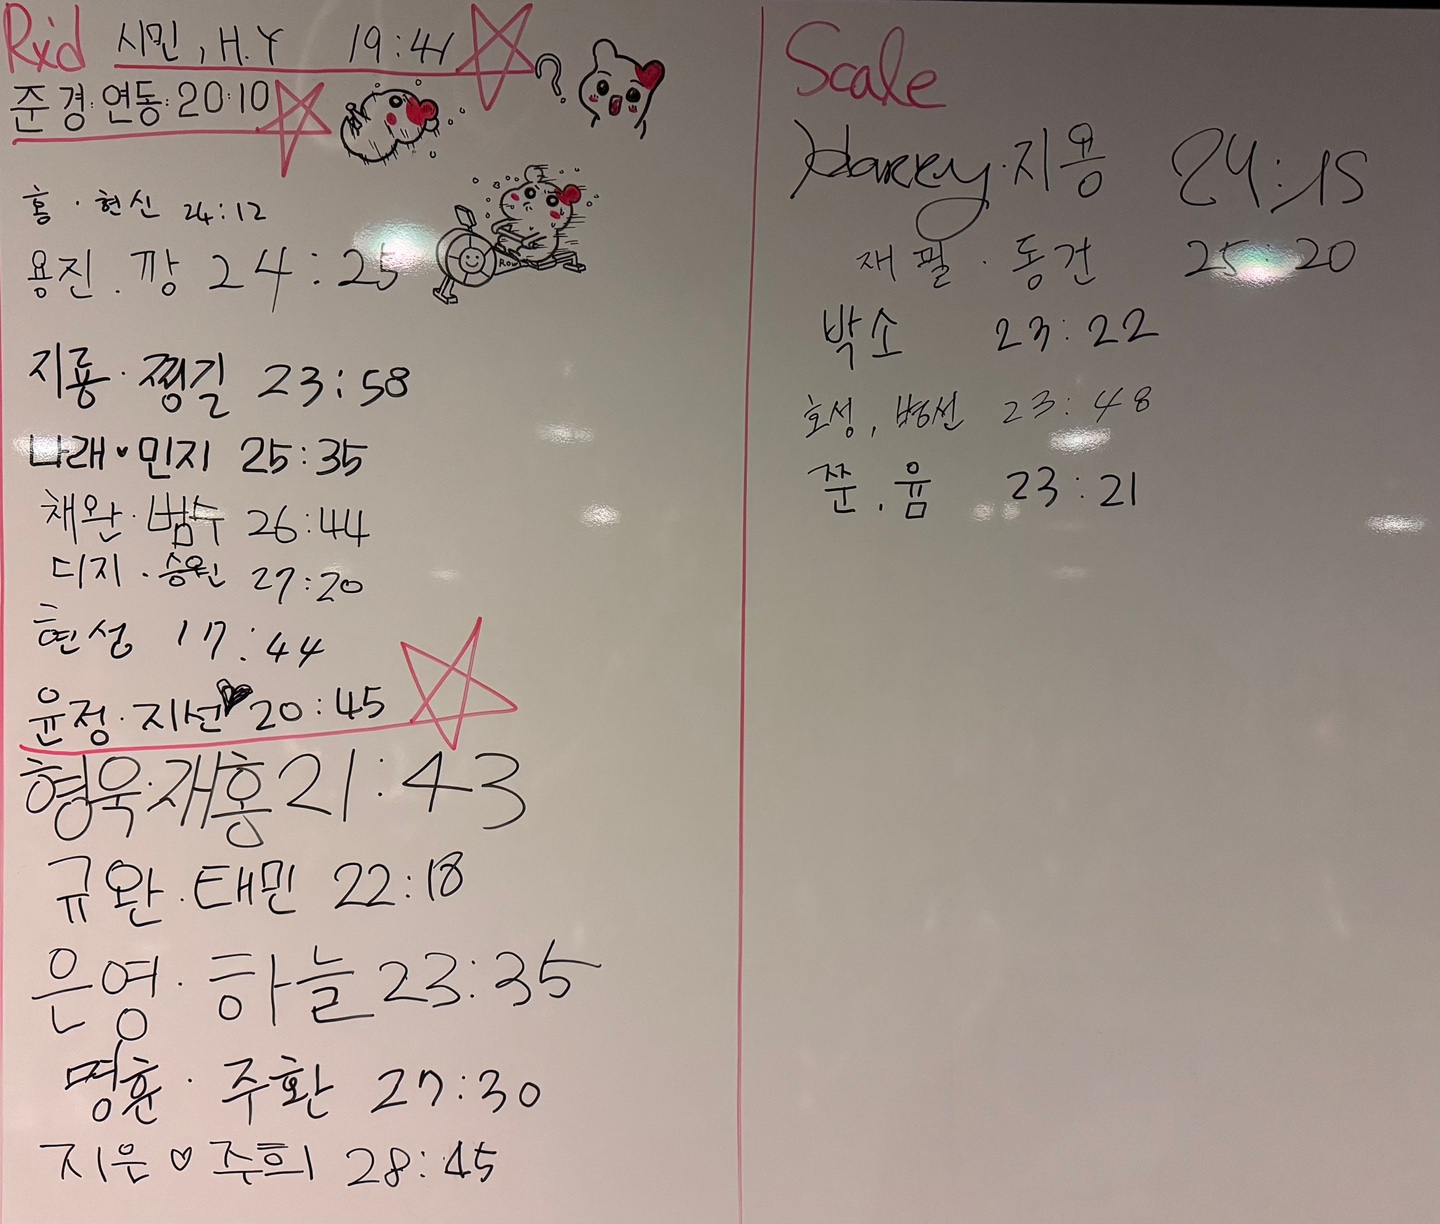 Rxd 시민, H.Y 19:41
준경·연동·20:10
?
홍·현신 24:12
용진·깡 24:25
Row
지룡·찡길 23:58
나래♥민지 25:35
채완·범수 26:44
디지·승원 27:20
현성 17:44
윤정·지선♥20:45
형욱·재홍 21:43
규완·태민 22:18
은영·하늘 23:35
명훈·주환 27:30
지은♡주희 28:45
Scale
Harry·지용 24:15
재필·동건 25:20
박소 23:22
호성, 병선 23:48
쭌.윰 23:21